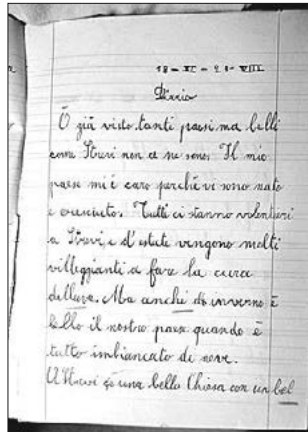 18 - XI - 29 - VIII
Diario
Ò già visto tanti paesi ma belli
come Strevi non ce ne sono. Il mio
paese mi è caro perchè vi sono nato
e cresciuto. Tutti ci stanno volentieri
a Strevi e d'estate vengono molti
villeggianti a fare la cura
dell'uva. Ma anchi di inverno è
bello il nostro paese quando è
tutto imbiancato di neve.
A Strevi c'è una bella Chiesa con un bel